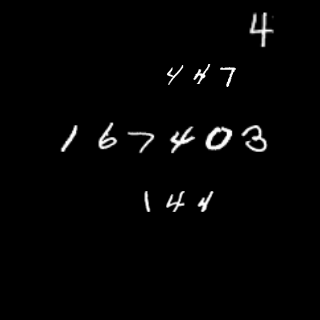 4
447
167403
144